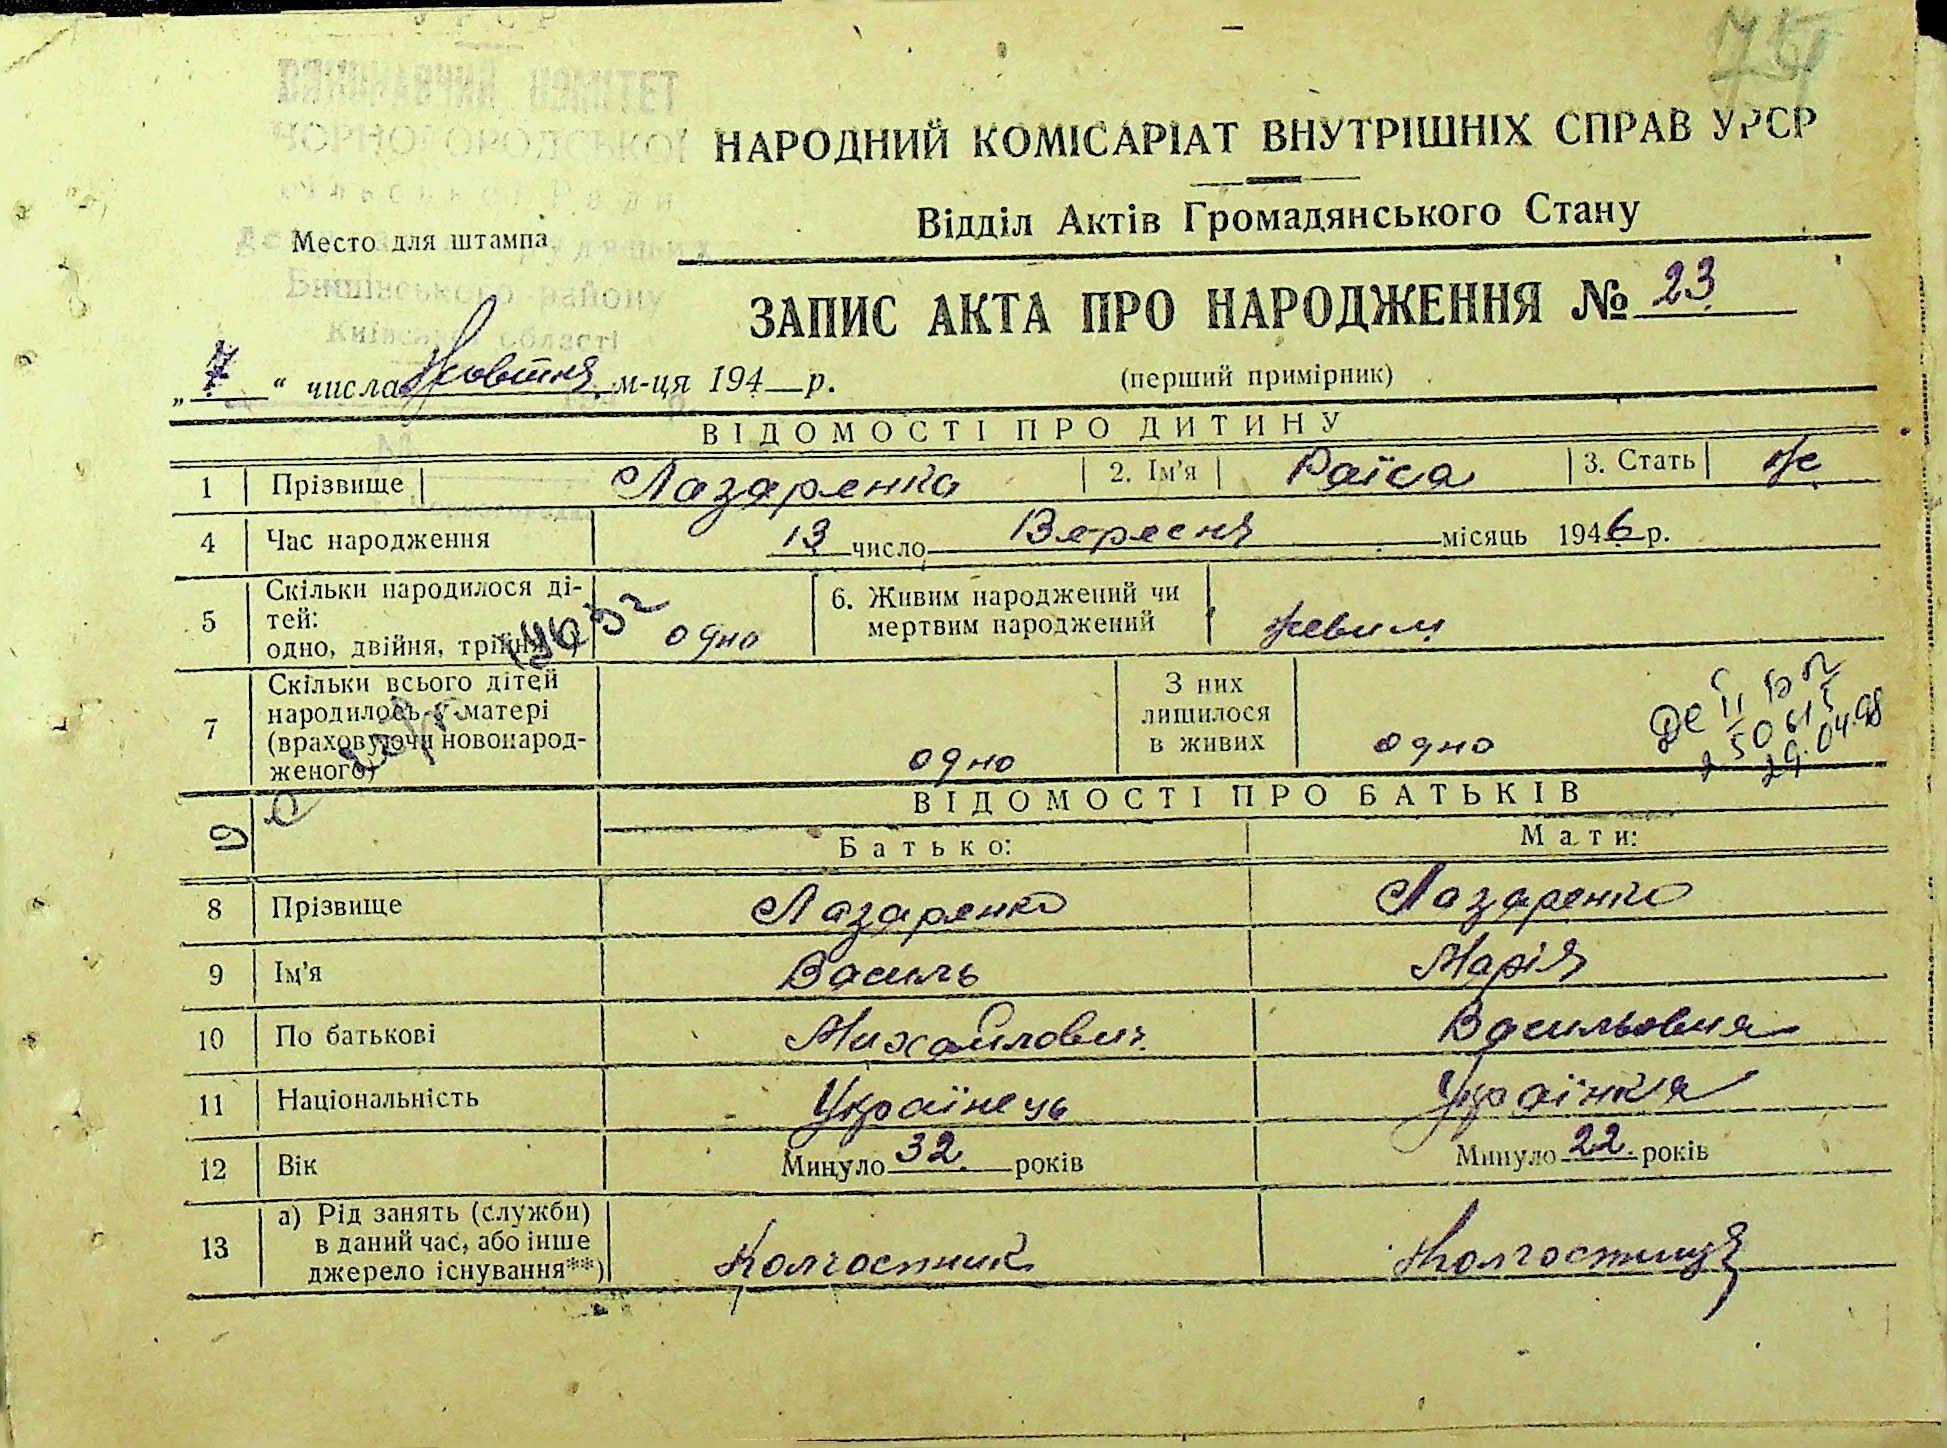 75
ВИКОНАВЧИЙ КОМІТЕТ
ЧОРНОГОРОДСЬКОЇ
Сільської Ради
депутатів трудящих
Бишівського району
Київської області
НАРОДНИЙ КОМІСАРІАТ ВНУТРІШНІХ СПРАВ УРСР
Відділ Актів Громадянського Стану
Место для штампа
ЗАПИС АКТА ПРО НАРОДЖЕННЯ № 23
„7“ числа Жовтня м-ця 194 р.
(перший примірник)
ВІДОМОСТІ ПРО ДИТИНУ
1 Прізвище Лазаренко 2. Ім'я Раїса 3. Стать ж
4 Час народження 13 число Вересня місяць 1946 р.
5 Скільки народилося ді-
тей:
одно, двійня, трійня*) одно
6. Живим народжений чи
мертвим народжений живим
7 Скільки всього дітей
народилось у матері
(враховуючи новонарод-
женого) одно
З них
лишилося
в живих одно
250615
29.04.98
ВІДОМОСТІ ПРО БАТЬКІВ
Батько: Мати:
8 Прізвище Лазаренко Лазаренко
9 Ім'я Василь Марія
10 По батькові Михайлович Васильовна
11 Національність Українець Українка
12 Вік Минуло 32 років Минуло 22 років
13 а) Рід занять (служби)
в даний час, або інше
джерело існування**) Колгостник Колгостниця